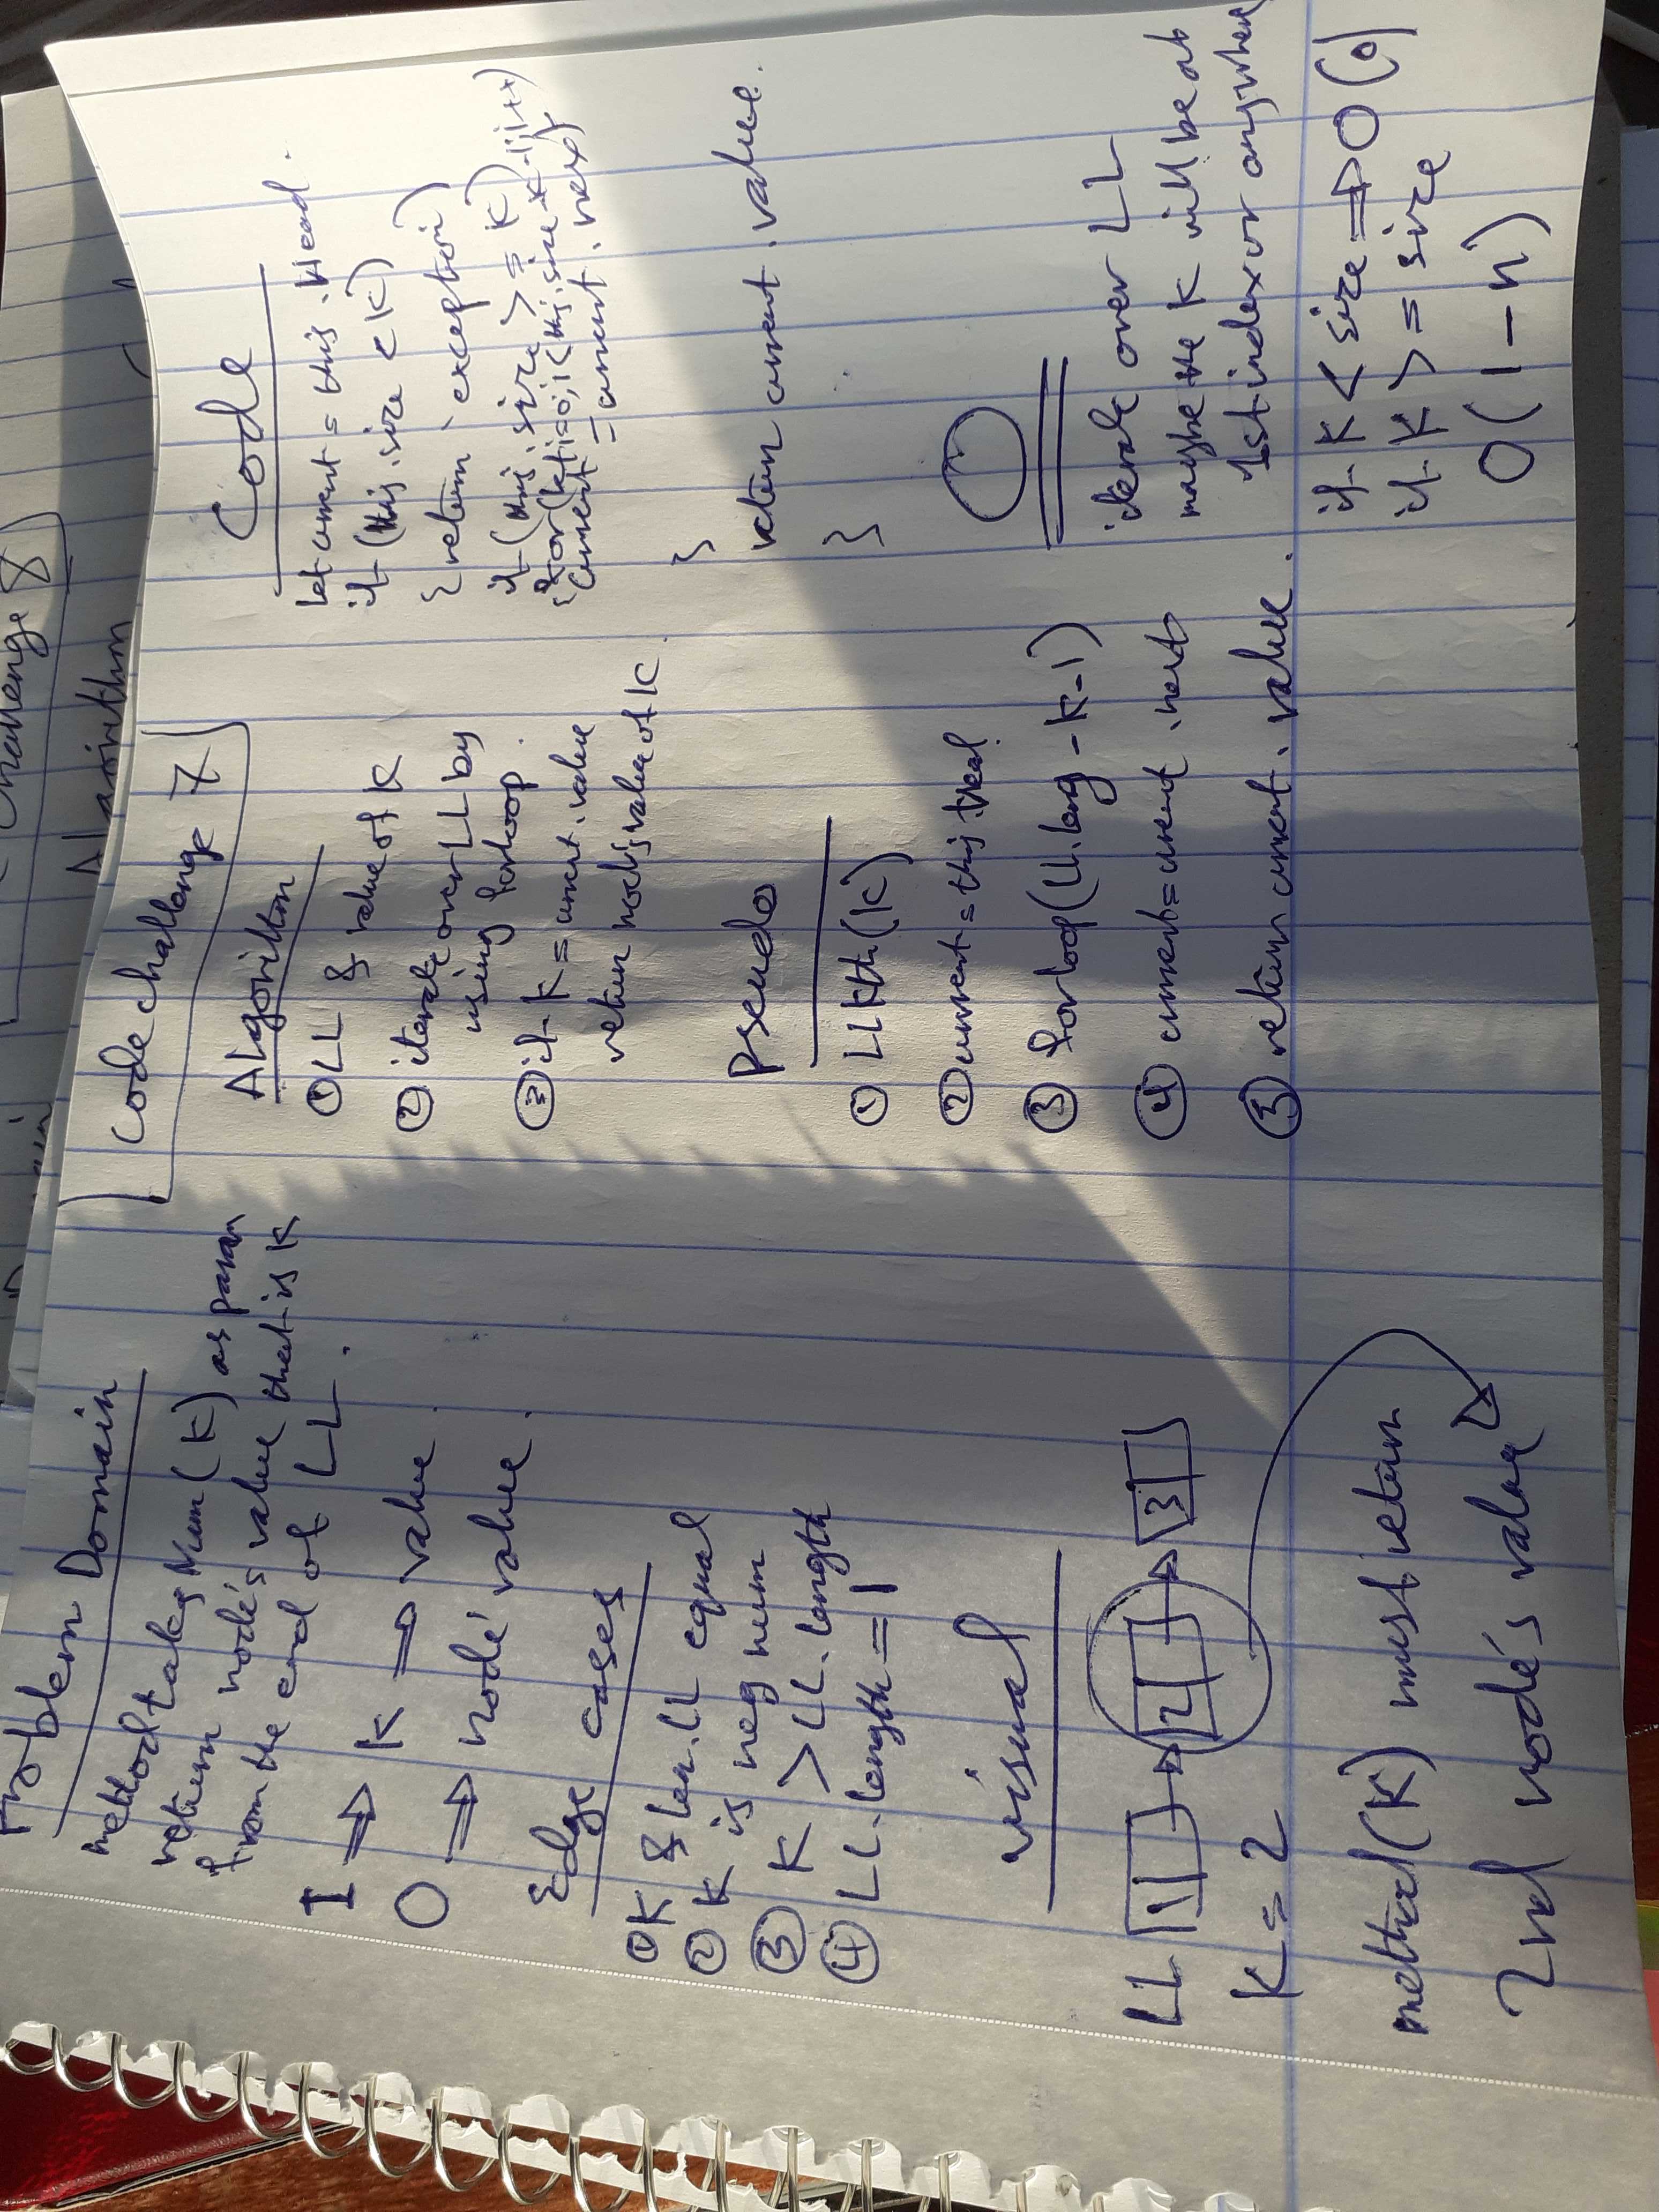 Code challenge 7
Problem Domain
method takes Num (K) as param
return node's value that is K
from the end of LL.
I ⇒ K ⇒ value
O ⇒ node' value.
Edge cases
① K & len.LL equal
② K is neg num
③ K > LL.length
④ LL.length = 1
visual
LL [1] → [2] → [3]
K = 2
method(K) must return
2nd node's value
Algorithm
① LL & value of K
② iterate over LL by
using forloop.
③ if K = current.value
return node's value of K.
Pseudo
① LLKth(K)
② current = this.Head
③ forloop(LL.leng - K-1)
④ current = current.next
⑤ return current.value.
Code
let current = this.Head.
if (this.size < K)
{ return 'exception'
if (this.size >= K)
{ for(let i=0; i<this.size-K-1; i++)
current = current.next
}
return current.value.
}
O
iterate over LL
maybe the K will be at
1st index or anywhere
if K < size ⇒ O(0)
if K >= size
O(1-n)
Challenge 8
Algorithm